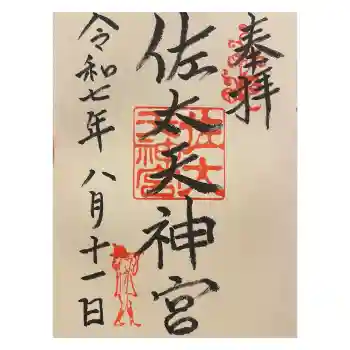 奉拝
佐太天神宮
佐太
天神宮
令和七年 八月十一日